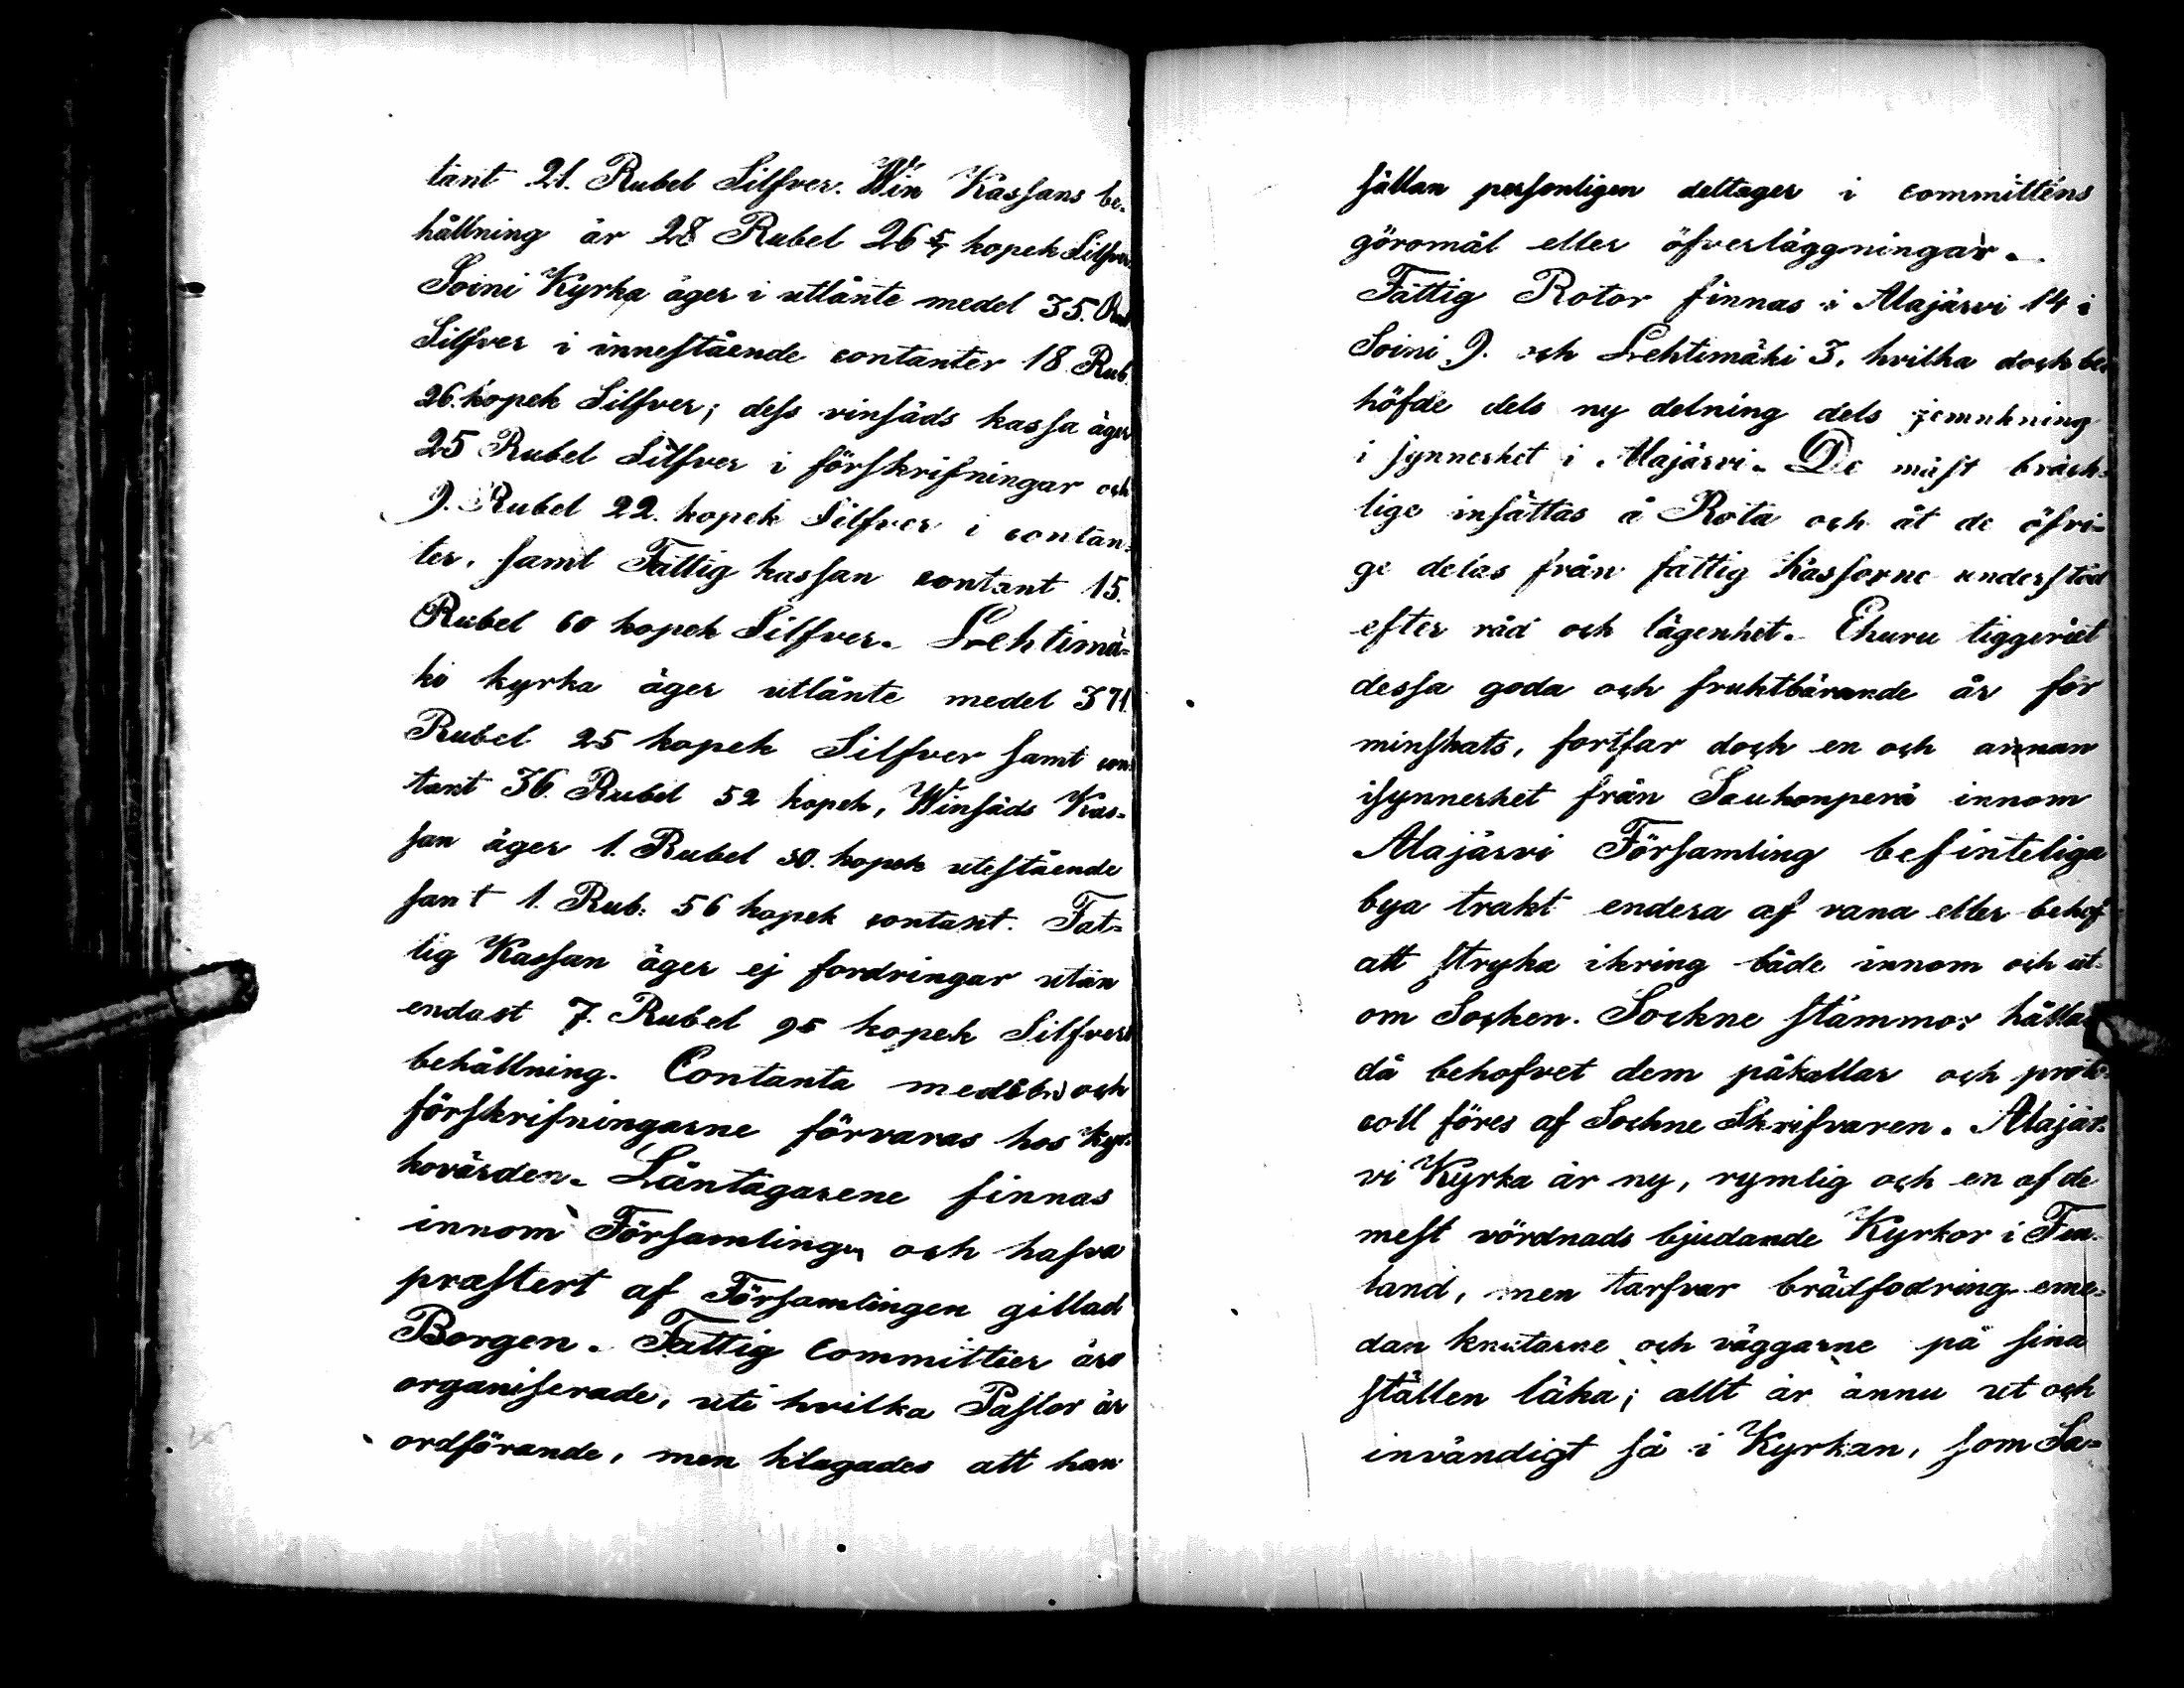 tant 21. Rubel Silfver. Win Kassans be-
hållning är 28 Rubel 26 5/7 kopek Silfver
Soini Kyrka äger i utlånte medel 35. Rub
Silfver i innestående contanter 18 Rub.
26. kopek Silfver; dess vinsäds kassa äger
25 Rubel Silfver i förskrifningar och
9. Rubel 22. kopek Silfver i contan-
ter. samt Fattig kassan contant 15.
Rubel 60 kopek Silfver. Lehtimä-
ki kyrka äger utlånte medel 371.
Rubel 25 kopek Silfver samt con-
tant 36. Rubel 52 kopek, Winsäds Kas-
san äger 1. Rubel 30. kopek utestående
samt 1. Rub: 56 kopek contant. Fat-
tig Kassan äger ej fordringar utan
endast 7. Rubel 95 kopek Silfver
behållning. Contanta medlen och
förskrifningarne förvaras hos Kyr-
kovärden. Låntagarene finnas
innom Församlingen och hafva
præstert af Församlingen gillad
Borgen. Fattig Committier äro
organiserade, uti hvilka Pastor är
ordförande, men klagades att han
sällan personligen deltager i committéns
göromål eller öfverläggningar.
Fattig Rotor finnas i Alajärvi 14 i
Soini 9. och Lehtimäki 3. hvilka dock be-
höfde dels ny delning dels jemnkning
i synnerhet i Alajärvi. De mäst bräck-
lige insättas å Rota och åt de öfvri-
ge delas från fattig Kassorne understöd
efter råd och lägenhet. Ehuru tiggeriet
dessa goda och fruktbärande år för
minskats, fortfar dock en och annan
isynnerhet från Saukonperä innom
Alajärvi Församling befinteliga
bya trakt endera af vana eller behof
att stryka ikring både innom och ut-
om Socken. Sockne stämmor hållas
då behofvet dem påkallar och proto-
coll föres af Sockne Skrifvaren. Alajär-
vi Kyrka är ny, rymlig och en af de
mest vördnads bjudande Kyrkor i Fin-
land, men tarfvar brädfodring eme-
dan knutarne och väggarne på sina
ställen läka; allt är ännu ut och
invändigt så i Kyrkan, som Sa-